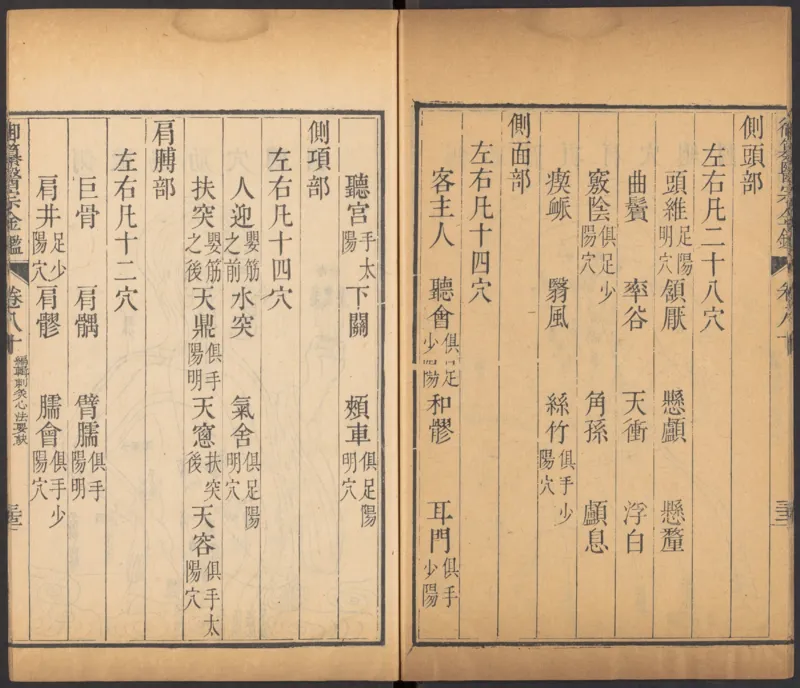 側頭部
左右凡二十八穴
頭維足陽明穴 頷厭 懸顱 懸釐
曲鬢 率谷 天衝 浮白
竅陰俱足少陽穴 角孫 顱息
瘈衇 翳風 絲竹俱手少陽穴
側面部
左右凡十四穴
客主人 聽會俱足少陽 和髎 耳門俱手少陽
聽宮手太陽 下關 頰車俱足陽明穴
側項部
左右凡十四穴
人迎嬰筋之前 水突 氣舍俱足陽明穴
扶突嬰筋之後 天鼎俱手陽明 天窻扶突後 天容俱手太陽穴
肩膊部
左右凡十二穴
巨骨 肩髃 臂臑俱手陽明
肩井足少陽穴 肩髎 臑會俱手少陽穴
御纂醫宗金鑑 卷八十 編輯刺灸心法要訣